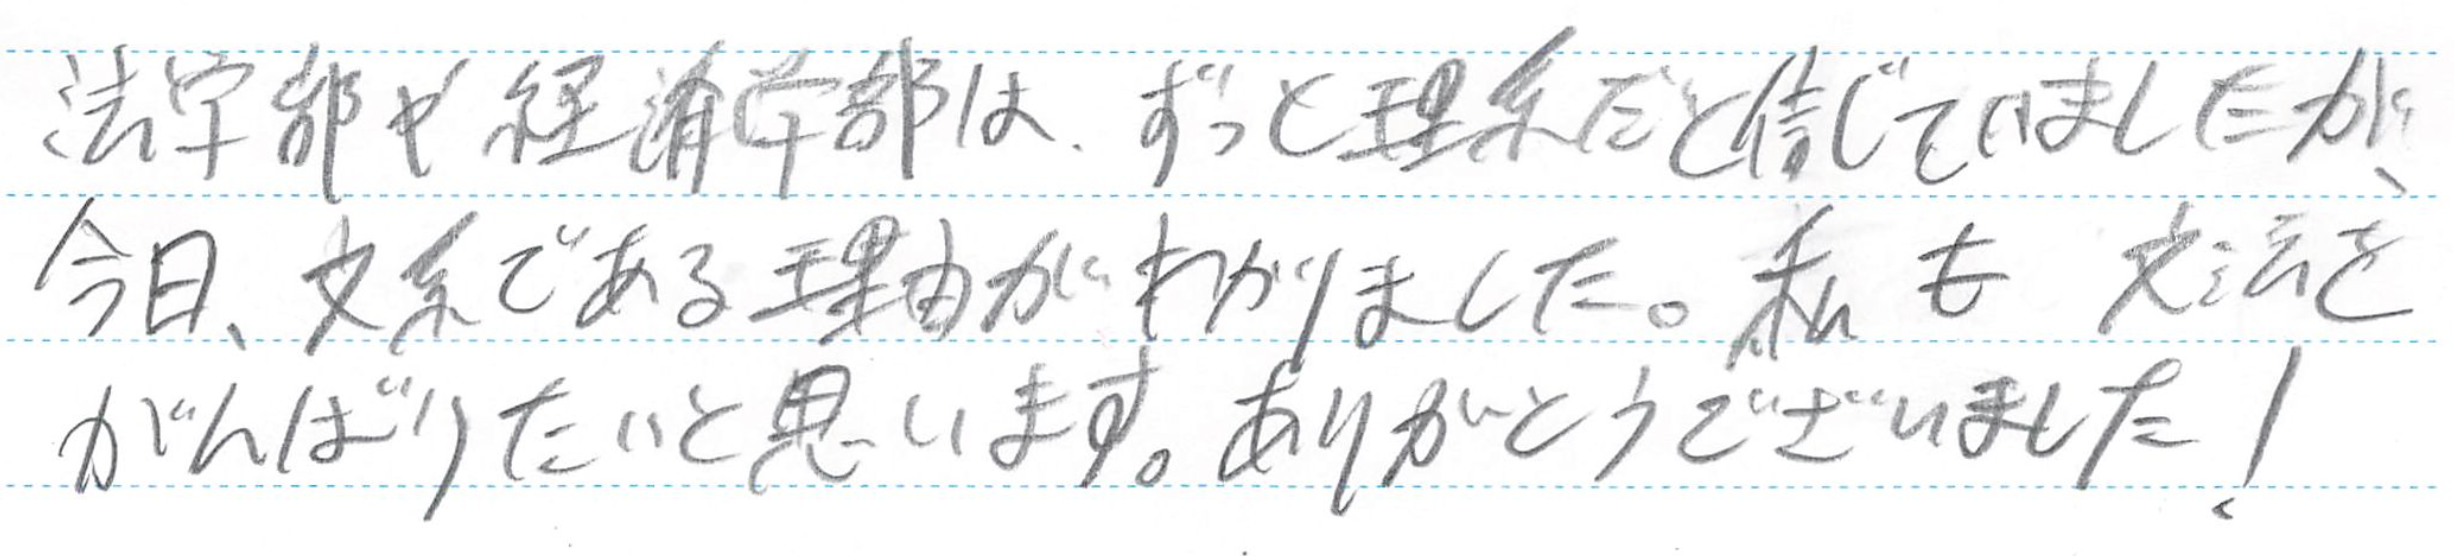 法学部や経済学部は、ずっと理系だと信じていましたが、
今日、文系である理由がわかりました。私も文法を
がんばりたいと思います。ありがとうございました!